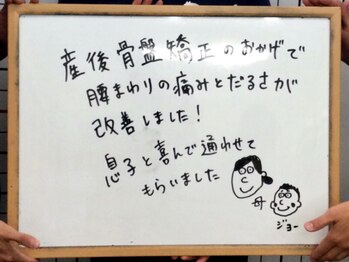 産後骨盤矯正のおかげで
腰まわりの痛みとだるさが
改善しました!
息子と喜んで通わせて
もらいました
母
ジョー